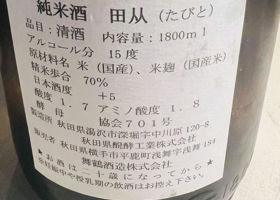 純米酒 田从（たびと）
品目：清酒 内容量：1800ml
アルコール分 15度
原材料名 米（国産）、米麹（国産米）
精米歩合 70%
日本酒度 +5
酸度 1.7 アミノ酸度 1.8
酵母 協会701号
製造者 秋田県湯沢市深堀字中川原120-8
秋田県醗酵工業株式会社
販売者 秋田県横手市平鹿町浅舞字浅舞184
舞鶴酒造株式会社
★お酒は二十歳になってから★
妊娠中や授乳期の飲酒はお控え下さい。